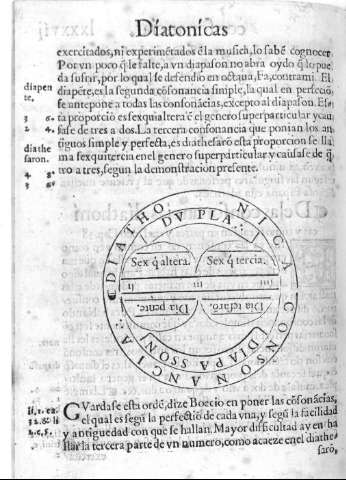 Diatonicas
exercitados, ni experimẽtados ẽ la musica, lo sabẽ cognocer.
Por vn poco q̃ le falte, a vn diapason no abra oydo q̃ lo pue
da sufrir, por lo qual se defendio en octaua, Fa, contra mi. El
diapẽte, es la segunda cõsonancia simple, la qual en perfeciõ,
se antepone a todas las consonãcias, excepto al diapason. Es
ta proporciõ es sexqui altera ẽ el genero superparticular y cau
sase de tres a dos. La tercera consonancia que ponian los an
tiguos simple y perfecta, es diathesarõ esta proporcion se lla
ma sexquitercia en el genero superparticular y causase de q̃
tro a tres, segun la demonstracion presente.
diapen
te.
3
2.
diathe
saron.
4.
3
DIATHO NICA CONSONANCIA:
DVPLA:
Sex q̃ altera.
Sex q̃ tercia.
ij
iij
iiij
Dia pente.
Dia tesarõ.
DIAPASSON
GVardase esta ordẽ, dize Boecio en poner las cõsonãcias,
el qual es segũ la perfectiõ de cada vna, y segũ la facilidad
y antiguedad con que se hallan. Mayor dificultad ay en ha
llar la tercera parte de vn numero, como acaeze en el diathe
sarõ,
li. 1. ca.
32. & li
2. c. 1.